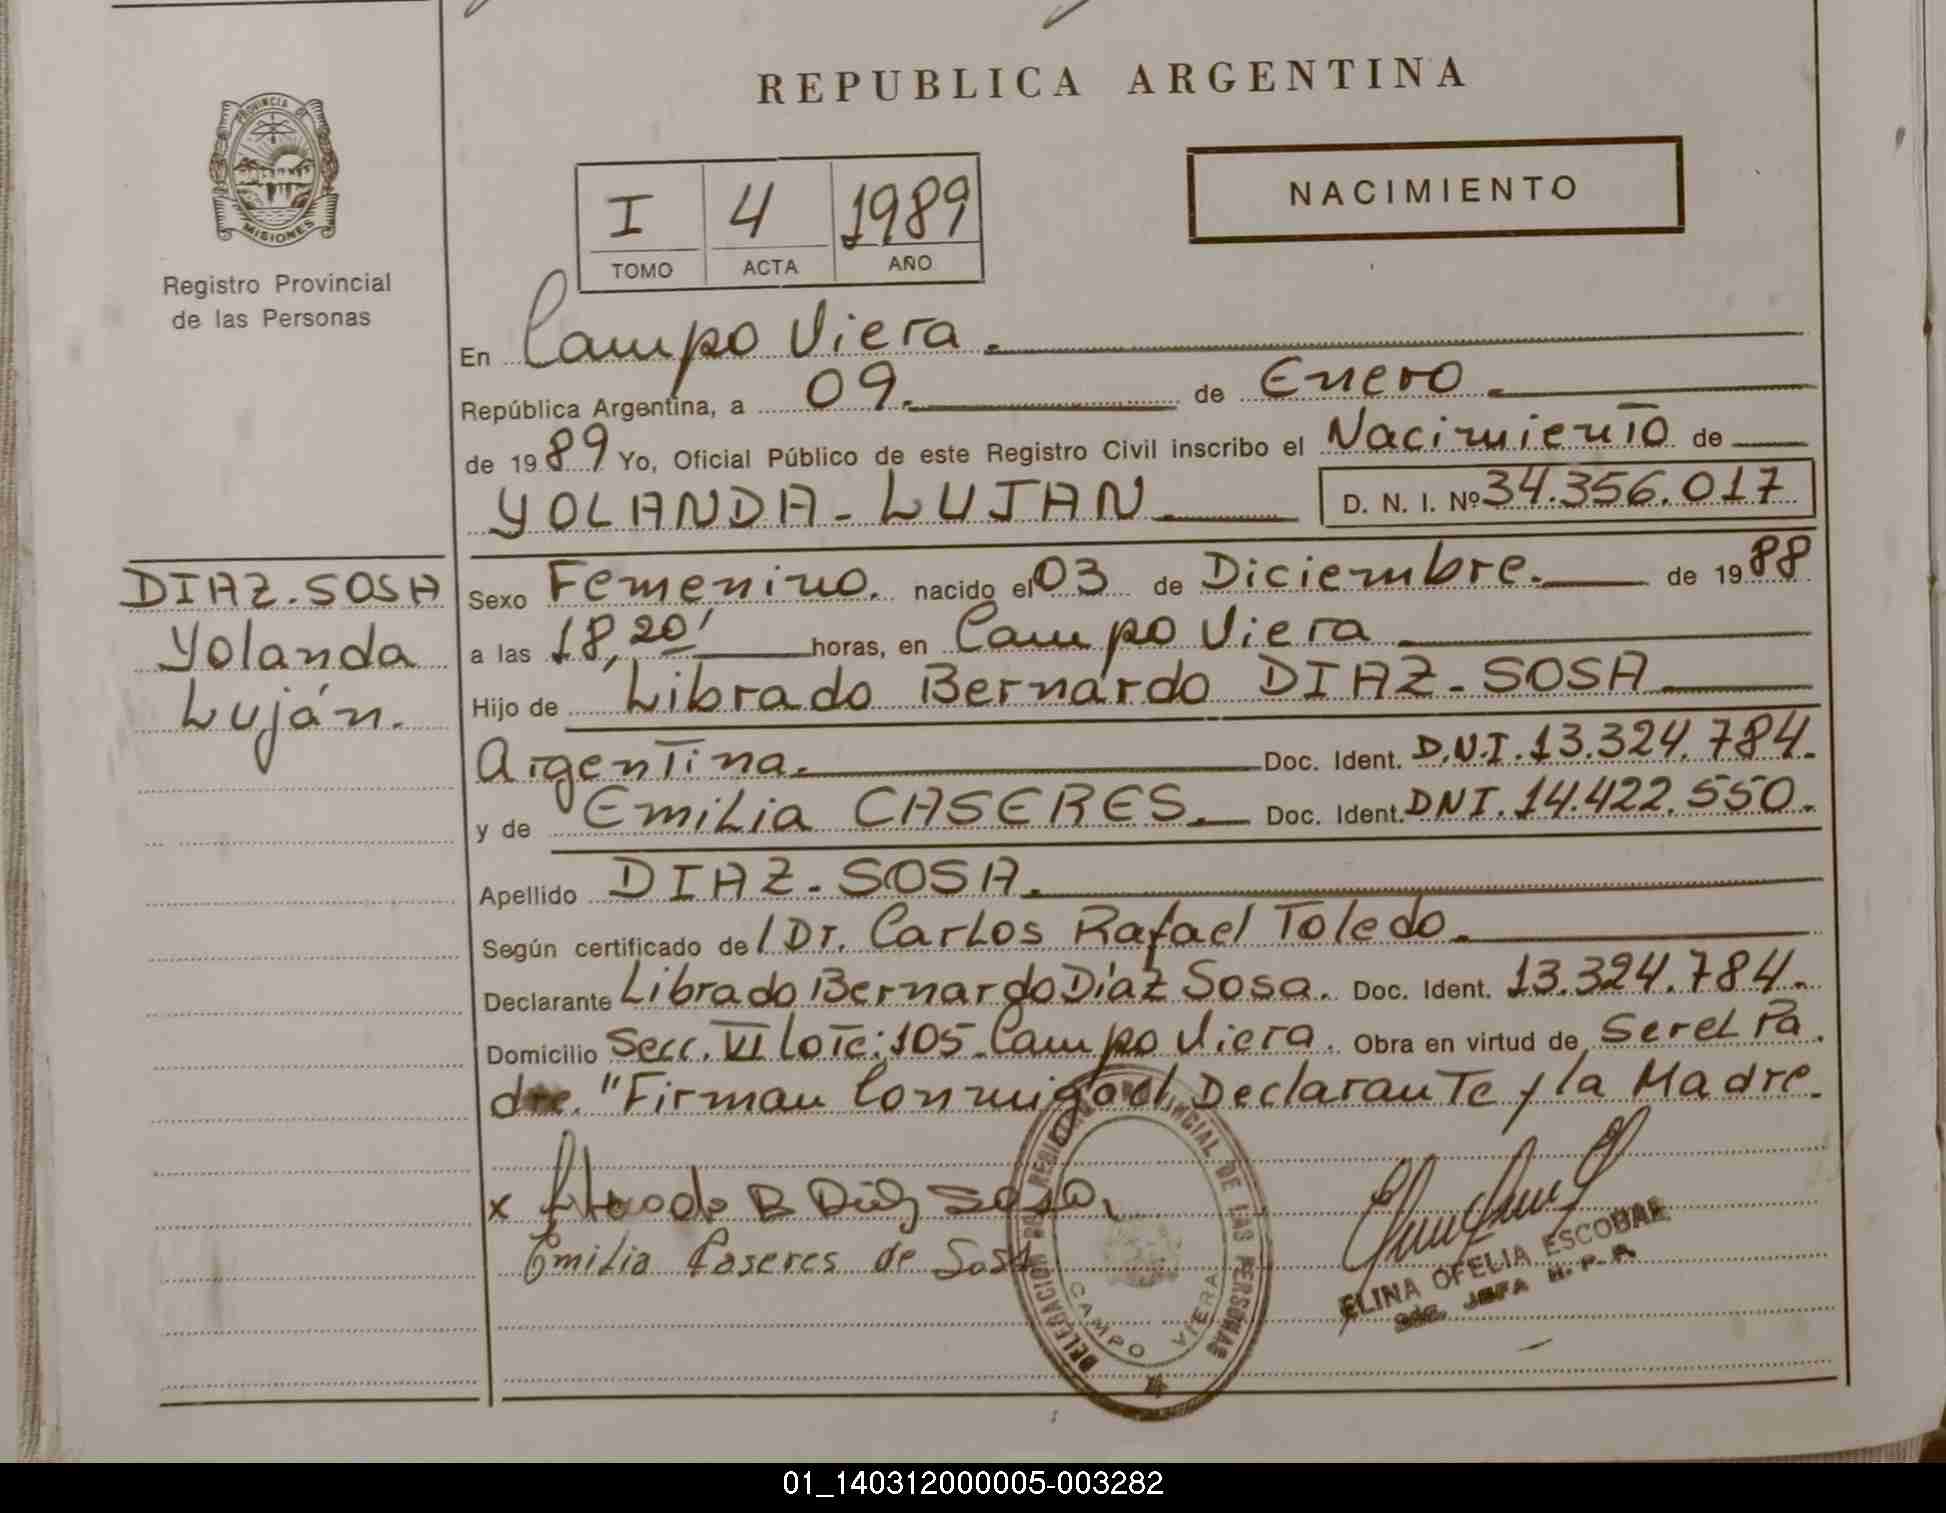 REPUBLICA ARGENTINA
PROVINCIA DE
MISIONES
Registro Provincial
de las Personas
I 4 1989
TOMO ACTA AÑO
NACIMIENTO
En Campo Viera.
República Argentina, a 09. de Enero.
de 1989 Yo, Oficial Público de este Registro Civil inscribo el Nacimiento de
YOLANDA - LUJAN D. N. I. Nº 34.356.017
DIAZ. SOSA
Yolanda
Luján.
Sexo Femenino. nacido el 03 de Diciembre. de 1988
a las 18,20' horas, en Campo Viera
Hijo de Librado Bernardo DIAZ - SOSA
Argentina. Doc. Ident. D.N.I. 13.324.784.
y de Emilia CASERES. Doc. Ident. DNI. 14.422.550.
Apellido DIAZ - SOSA.
Según certificado de / Dr. Carlos Rafael Toledo.
Declarante Librado Bernardo Díaz Sosa. Doc. Ident. 13.324.784.
Domicilio Secc. VI lote: 105. Campo Viera. Obra en virtud de Ser el Pa
dre. "Firman Conmigo el Declarante y la Madre.
x Librado B Diaz Sosa
Emilia Caseres de Sosa
DELEGACION REGISTRO PROVINCIAL DE LAS PERSONAS
CAMPO VIERA
ELINA OFELIA ESCOBAR
JEFA R. P. P.
01_140312000005-003282